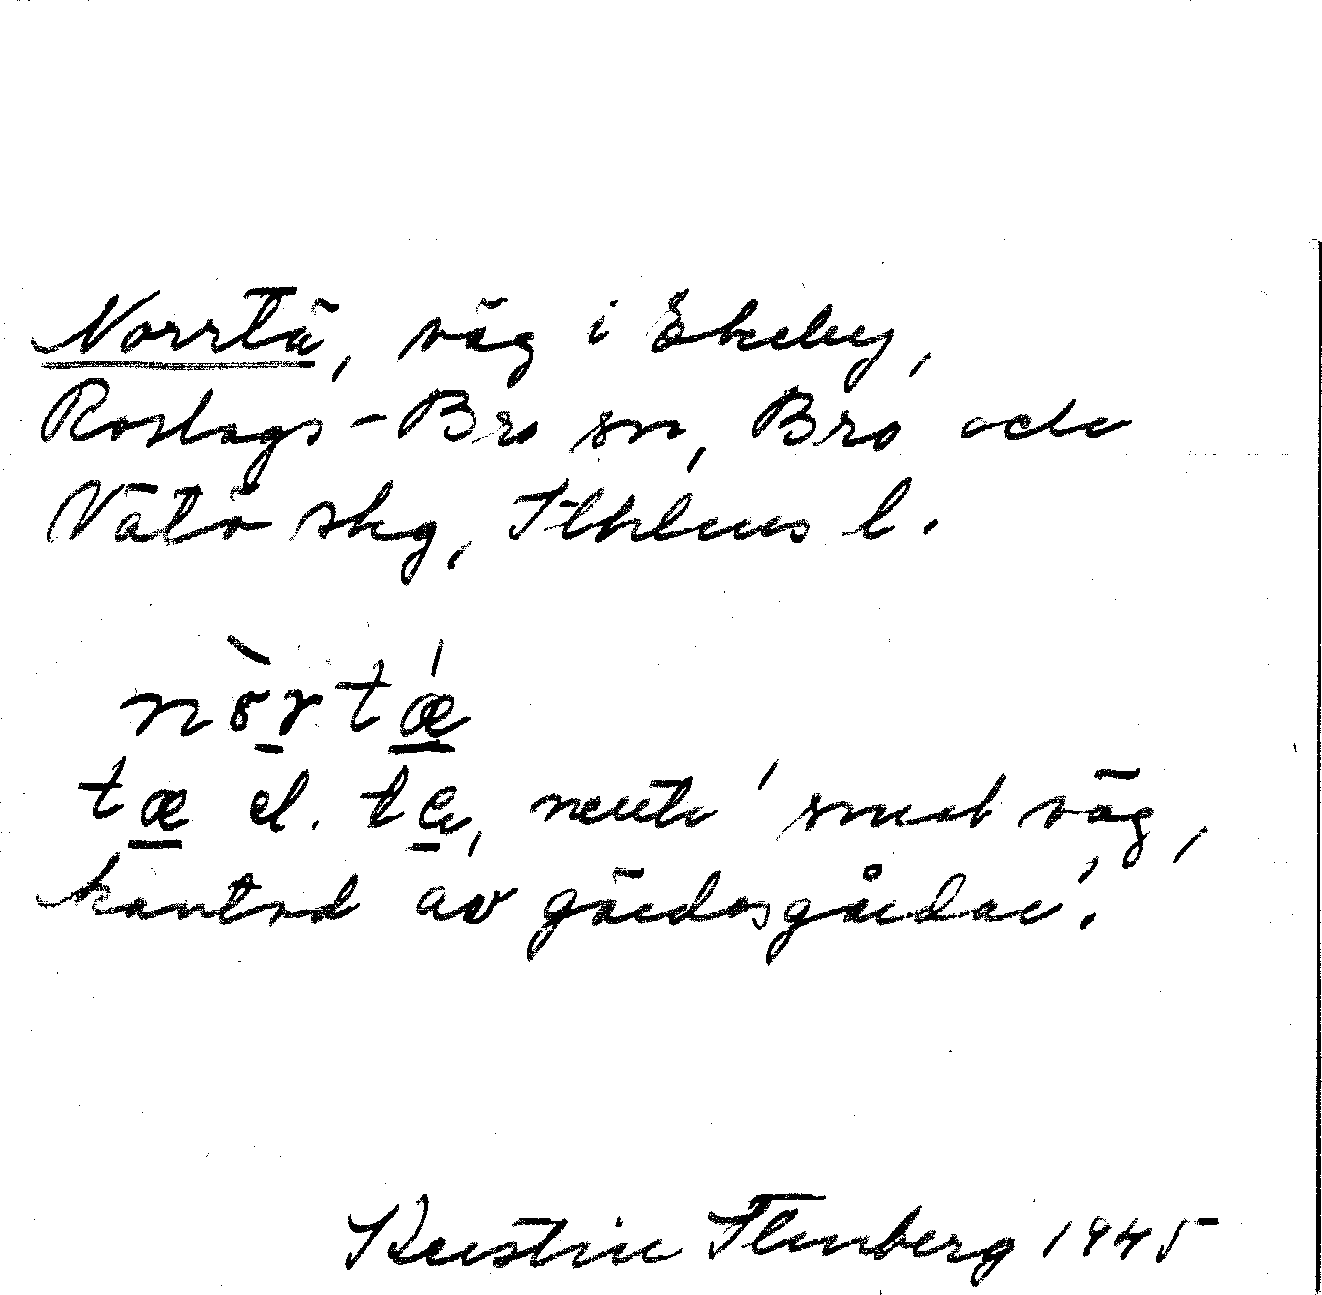 Norrtä, väg i Ekeby,
Roslags-Bro sn, Bro och
Vätö skg, Sthlms l.
nò̱rtǽ
tæ el. tæ, neutr 'smal väg,
kantad av gärdesgårdar'.
Kerstin Flenberg 1945